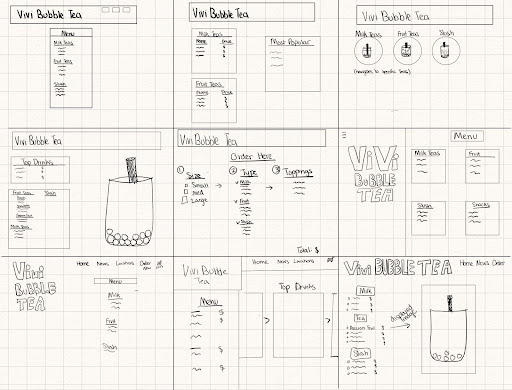 Vivi Bubble Tea
Menu
Milk Teas
Fruit Teas
Slush
Vivi Bubble Tea
Milk Teas
Name Price
$
$
$
Most Popular
Fruit Teas
Name Price
$
$
$
Vivi Bubble Tea
Milk Teas
Fruit Teas
Slush
Vivi Bubble Tea
Top Drinks
Fruit Teas Slush
Milk Teas
Vivi Bubble Tea
Order Here
1 Size
Small
Med
Large
2 Type
Milk
Fruit
Slush
3 Toppings
Total: $
ViVi
BUBBLE
TEA
Menu
Milk Teas
Fruit
Slush
Snacks
Vivi
BUBBLE
TEA
Home News Locations Order Now
Menu
Milk
Fruit
Slush
Vivi Bubble
Tea
Home News Locations
Menu
$
$
$
$
Top Drinks
ViVi BUBBLE TEA
Home News Order
Milk
Tea
Passion Fruit
Slush